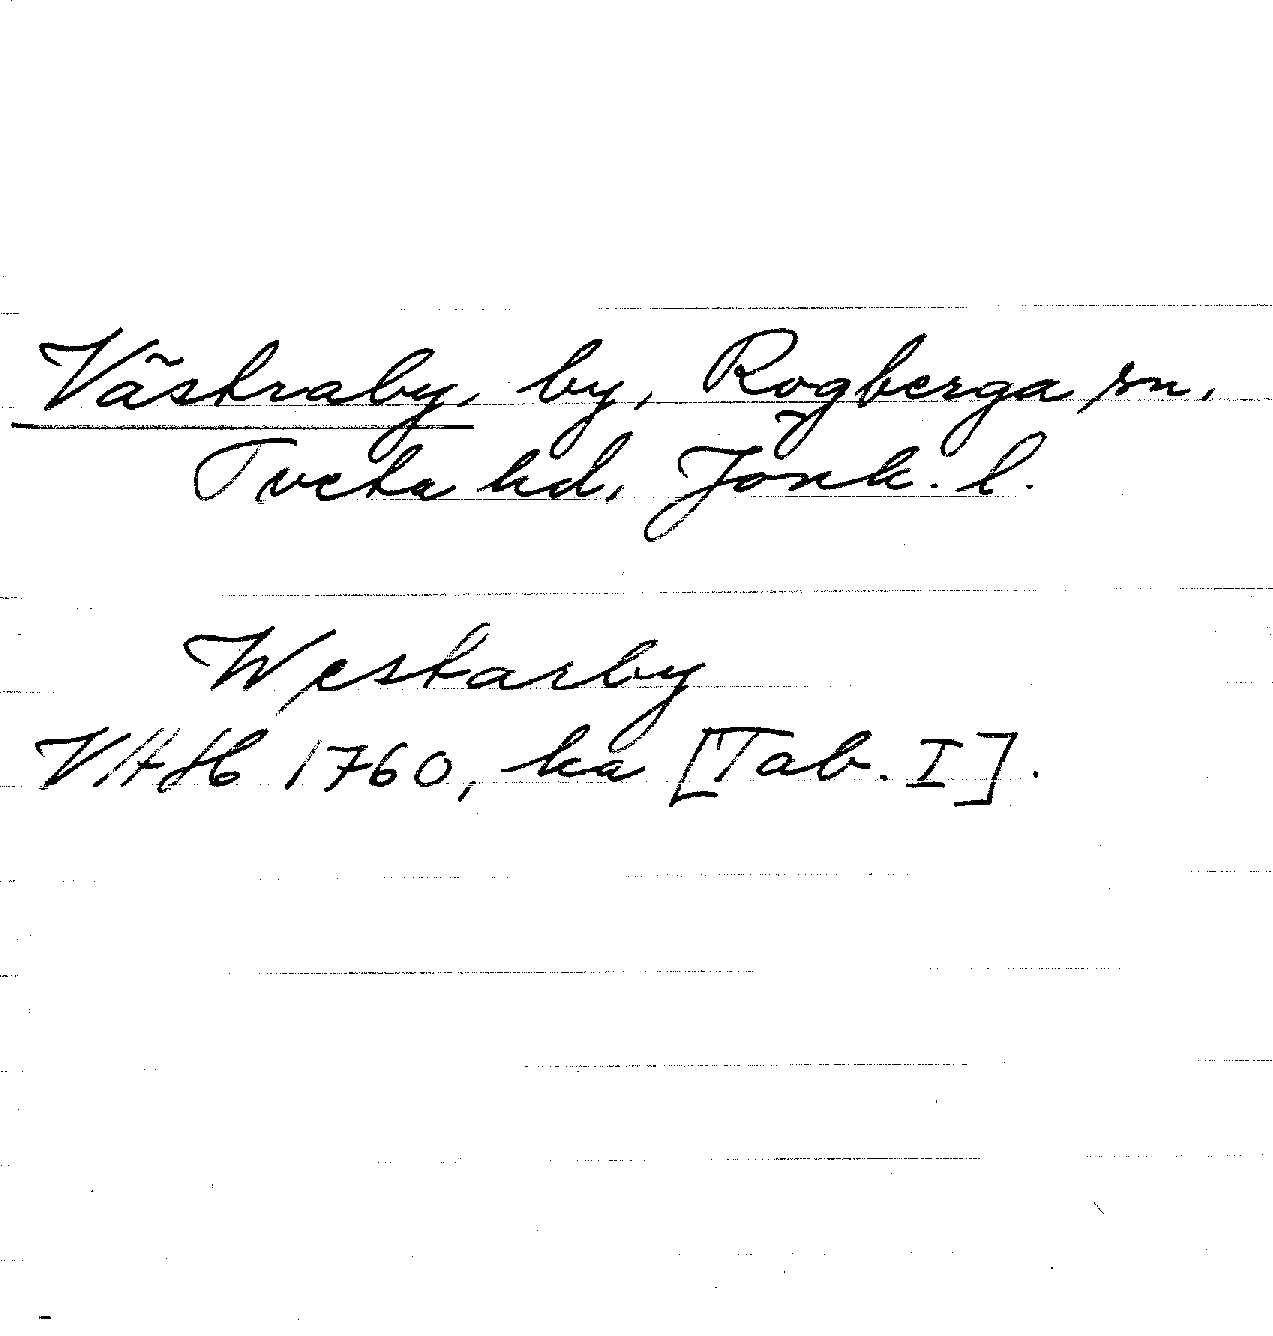 Västraby, by, Rogberga sn,
Tveta hd, Jönk. l.
Westarby
VHAH 1760, ka [Tab. I].